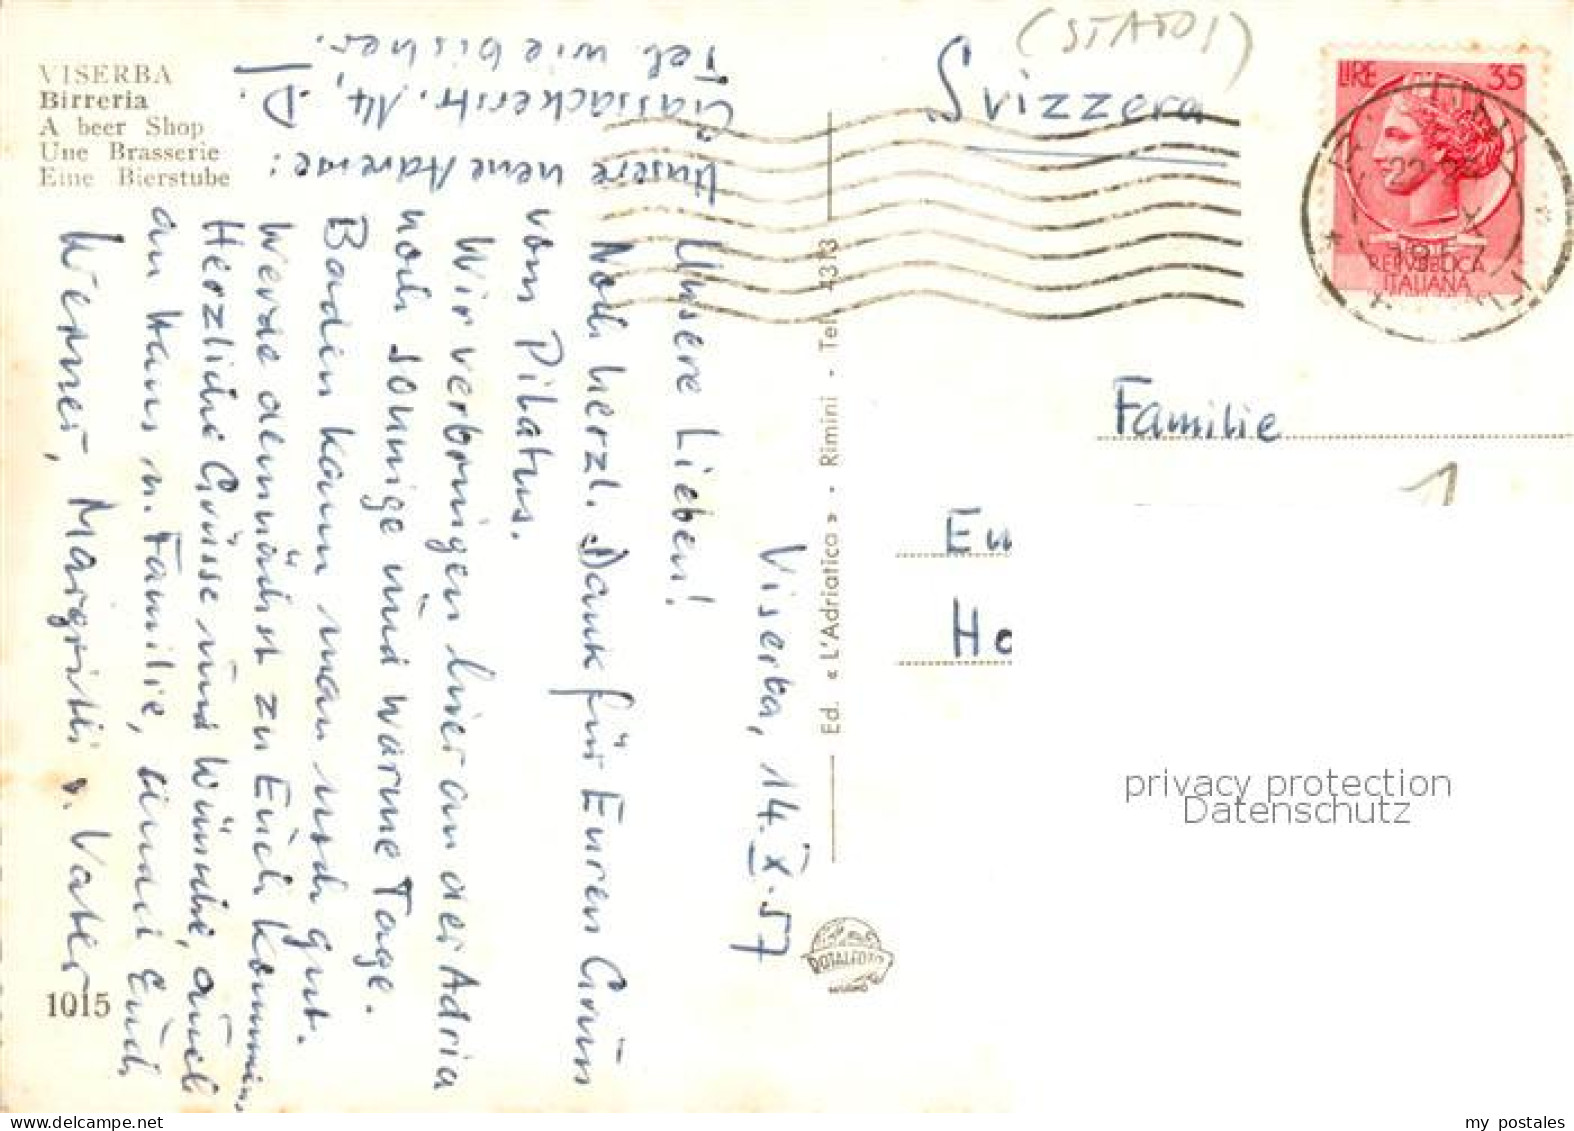 VISERBA
Birreria
A beer Shop
Une Brasserie
Eine Bierstube
Viserba, 14. X. 57
Unsere Lieben!
Noch herzl. Dank für Euren Gruss
vom Pilatus.
Wir verbringen hier an der Adria
noch sonnige und warme Tage.
Baden kann man noch gut.
Werde demnächst zu Euch kommen.
Herzliche Grüsse und Wünsche, auch
an Hans u. Familie, sendet Euch
Werner, Margritli u. Vater
Unsere neue Adresse:
Gassackerstr. 14, D.
Tel. wie bisher.
1015
Ed. « L'Adriatica » - Rimini - Tel. 4313
ROTALFOTO
MILANO
(STATI)
Svizzera
LIRE 35
REPVBBLICA
ITALIANA
Familie
1
Eu
Ho
privacy protection
Datenschutz
my postales